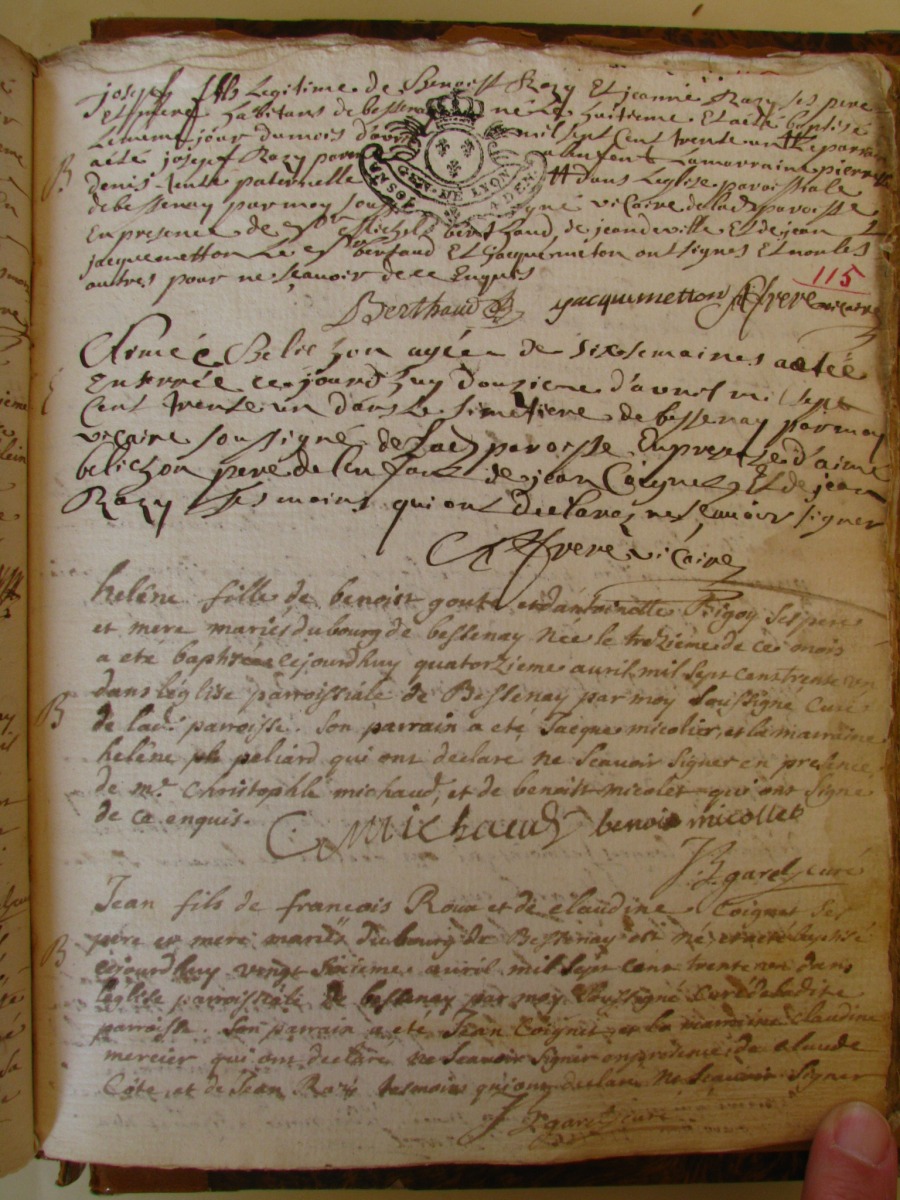 joseph fils Legitime de Benoist Razy Et jeanne Razy ses pere
Et mere habitans de bessenay né Le huitieme Et aété baptisé
Lememe jour dumois d'avril mil sept Cent trente un Le parrain
B
aété joseph Razy
GEN·DE LYON
denis tente paternelle dans Leglise paroissiale
de bessenay par moy sous signé vicaire delad paroisse
En presence de Sr Michel berthaud, de jean deville Et de jean
jacquemetton Le Sr bertaud Et jacquemeton ont signes Et non les
autres pour ne Sçavoir de ce Enquis
115
Berthaud jacqumetton frere vicaire
Aimée Belichon agée de six semaines aetée
Enterrée cejourdhuy douzieme d'avril mil sept
Cent trente un dans Le simetiere de bessenay par moy
vicaire soussigné de Lad paroisse En presence d'aimé
belichon pere de Lenfant de jean Coignet Et de jean
Razy tesmoins qui ont declarez ne scavoir signer
frere vicaire
helêne fille de benoist goutt et d'antoinette Rigoy Ses pere
et mere mariés du bourg de bessenay Née le trezieme de ce mois
a eté baptisée cejourdhuy quatorzieme avril mil Sept cens trente un
dans léglise parroissiale de Bessenay par moy Soussigné Curé
B
de lad. parroisse. Son parrain a eté Jacque micolier, et la marraine
helêne ph peliard qui ont declare ne Scavoir Signer en presence
de mr. Christophle michaud, et de benoist micolet qui ont Signé
de ce enquis. C Michaud benoit micollet
garel curé
Jean fils de francois Roux et de claudine Coignet Ses
B
pere et mere mariés du bourg de Bessenay est né et a eté baptisé
cejourdhuy vingt Sixieme avril mil Sept cent trente un dans
léglise parroissiale de bessenay par moy Soussigné Curé de ladite
parroisse. Son parrain a eté Jean Coignet et la marraine claudine
mercier qui ont declare ne Scavoir Signer en presence de claude
Cote, et de Jean Razi tesmoins qui ont declare Ne Scavoir Signer
garel curé